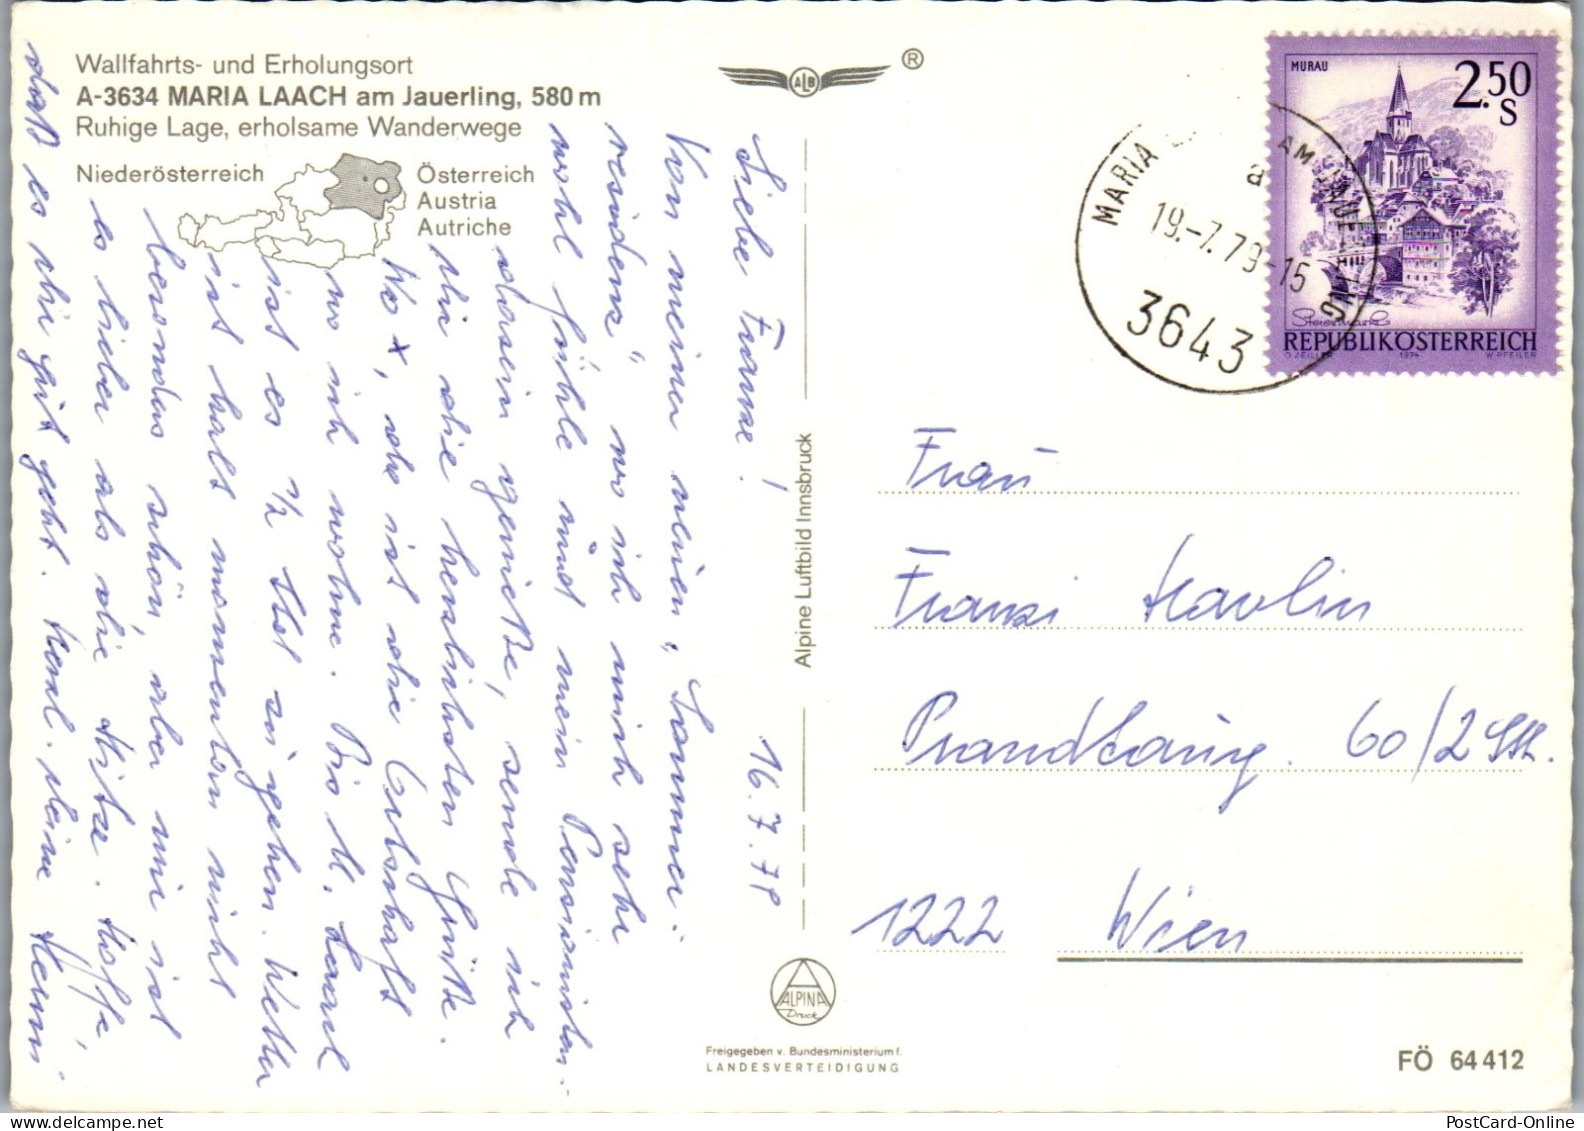 Wallfahrts- und Erholungsort
A-3634 MARIA LAACH am Jauerling, 580 m
Ruhige Lage, erholsame Wanderwege
Niederösterreich
Österreich
Austria
Autriche
ALB
®
MURAU
2.50
S
Steiermark
REPUBLIK ÖSTERREICH
O. ZEILLER 1974 W. PFEILER
MARIA AM JAUERLING
a
19.-7.79-15
3643
16.7.79
Liebe Franze!
Von meiner neuen „Sommer-
residenz" wo ich mich sehr
wohl fühle und mein Pensionisten-
dasein genieße, sende ich
Dir die herzlichsten Grüße.
Wo x, da ist die Ortschaft
wo ich wohne. Bis M. Laach
ist es 1/2 Std zu gehen. Wetter
ist halt momentan nicht
besonders schön, aber mir ist
es lieber als die Hitze. Hoffe,
daß es Dir gut geht. Herzl. Deine Hermi
Alpine Luftbild Innsbruck
ALPINA
Druck
Freigegeben v. Bundesministerium f.
LANDESVERTEIDIGUNG
Frau
Franzi Havlin
Prandtaug. 60/2
1222 Wien
FÖ 64 412
PostCard-Online